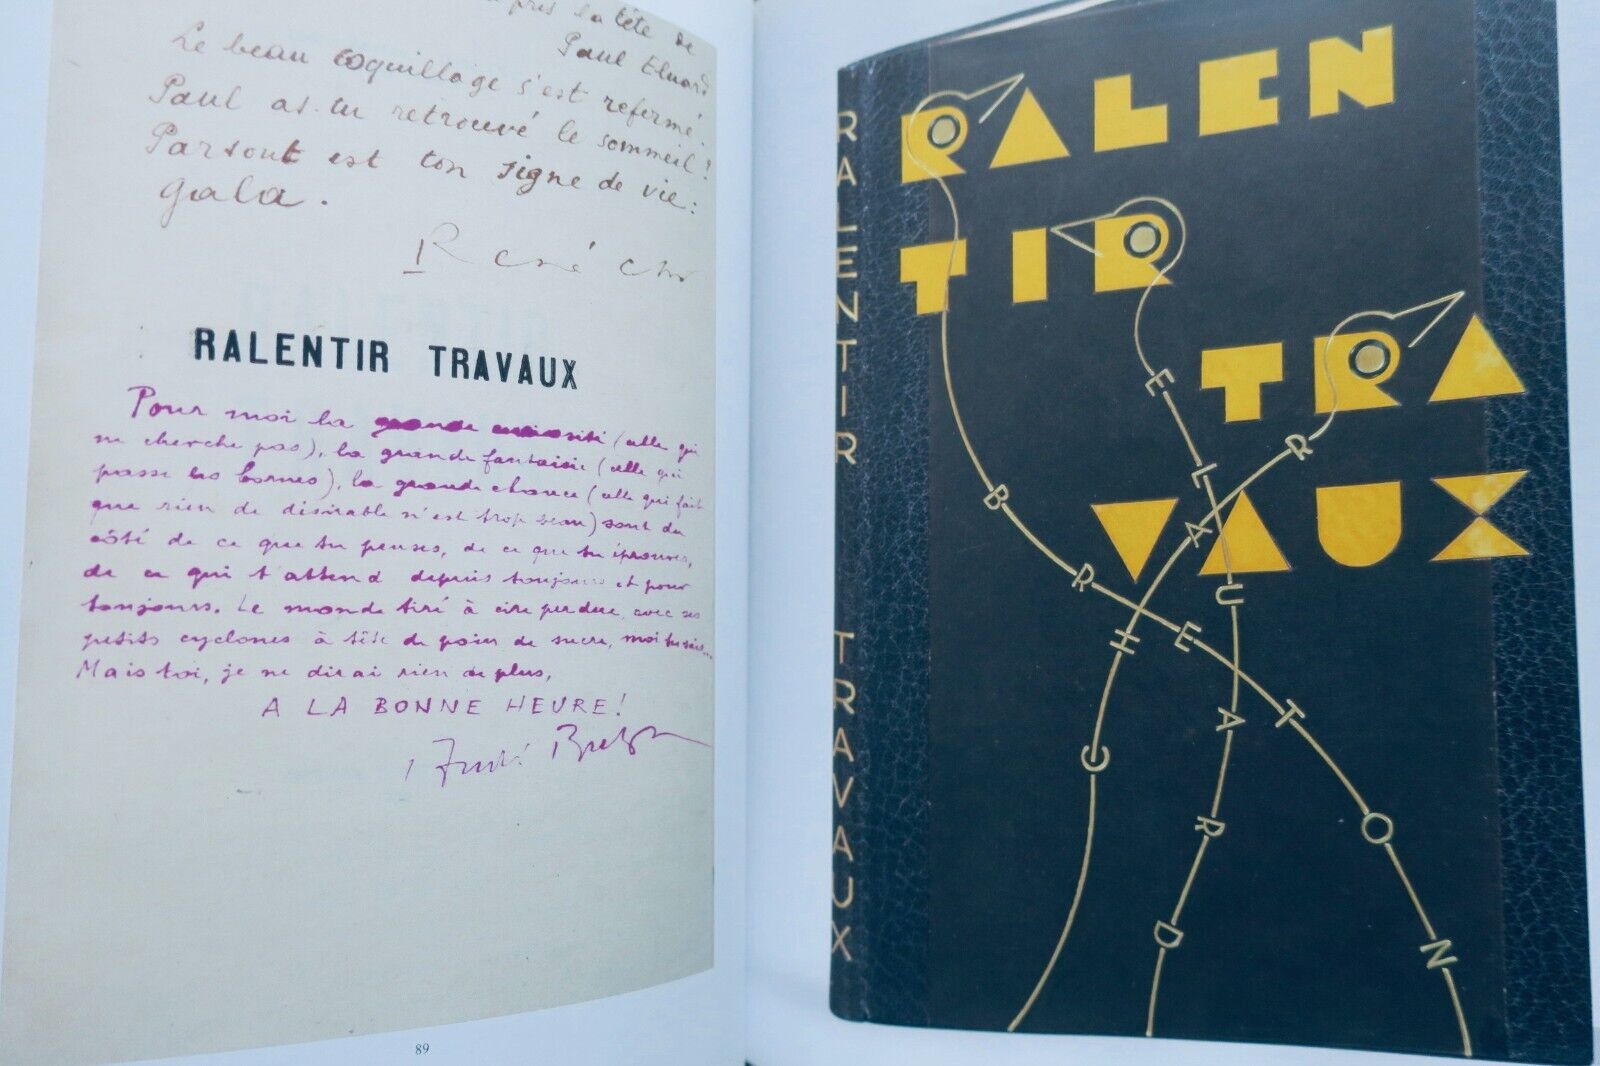 pris la tête de
Paul Eluard
Le beau coquillage s'est refermé
Paul as-tu retrouvé le sommeil ?
Partout est ton signe de vie :
Gala.
René Char
RALENTIR TRAVAUX
Pour moi la grande curiosité (celle qui
ne cherche pas), la grande fantaisie (celle qui
passe les bornes), la grande chance (celle qui fait
que rien de désirable n'est trop beau) sont du
côté de ce que tu penses, de ce que tu éprouves,
de ce qui t'attend depuis toujours et pour
toujours. Le monde tiré à cire perdue, avec ses
petits cyclones à tête de pain de sucre, moi tu sais...
Mais toi, je ne dirai rien de plus,
A LA BONNE HEURE !
André Breton
89
RALENTIR TRAVAUX
RALEN
TIR
TRA
VAUX
BRETON
ELUARD
CHAR